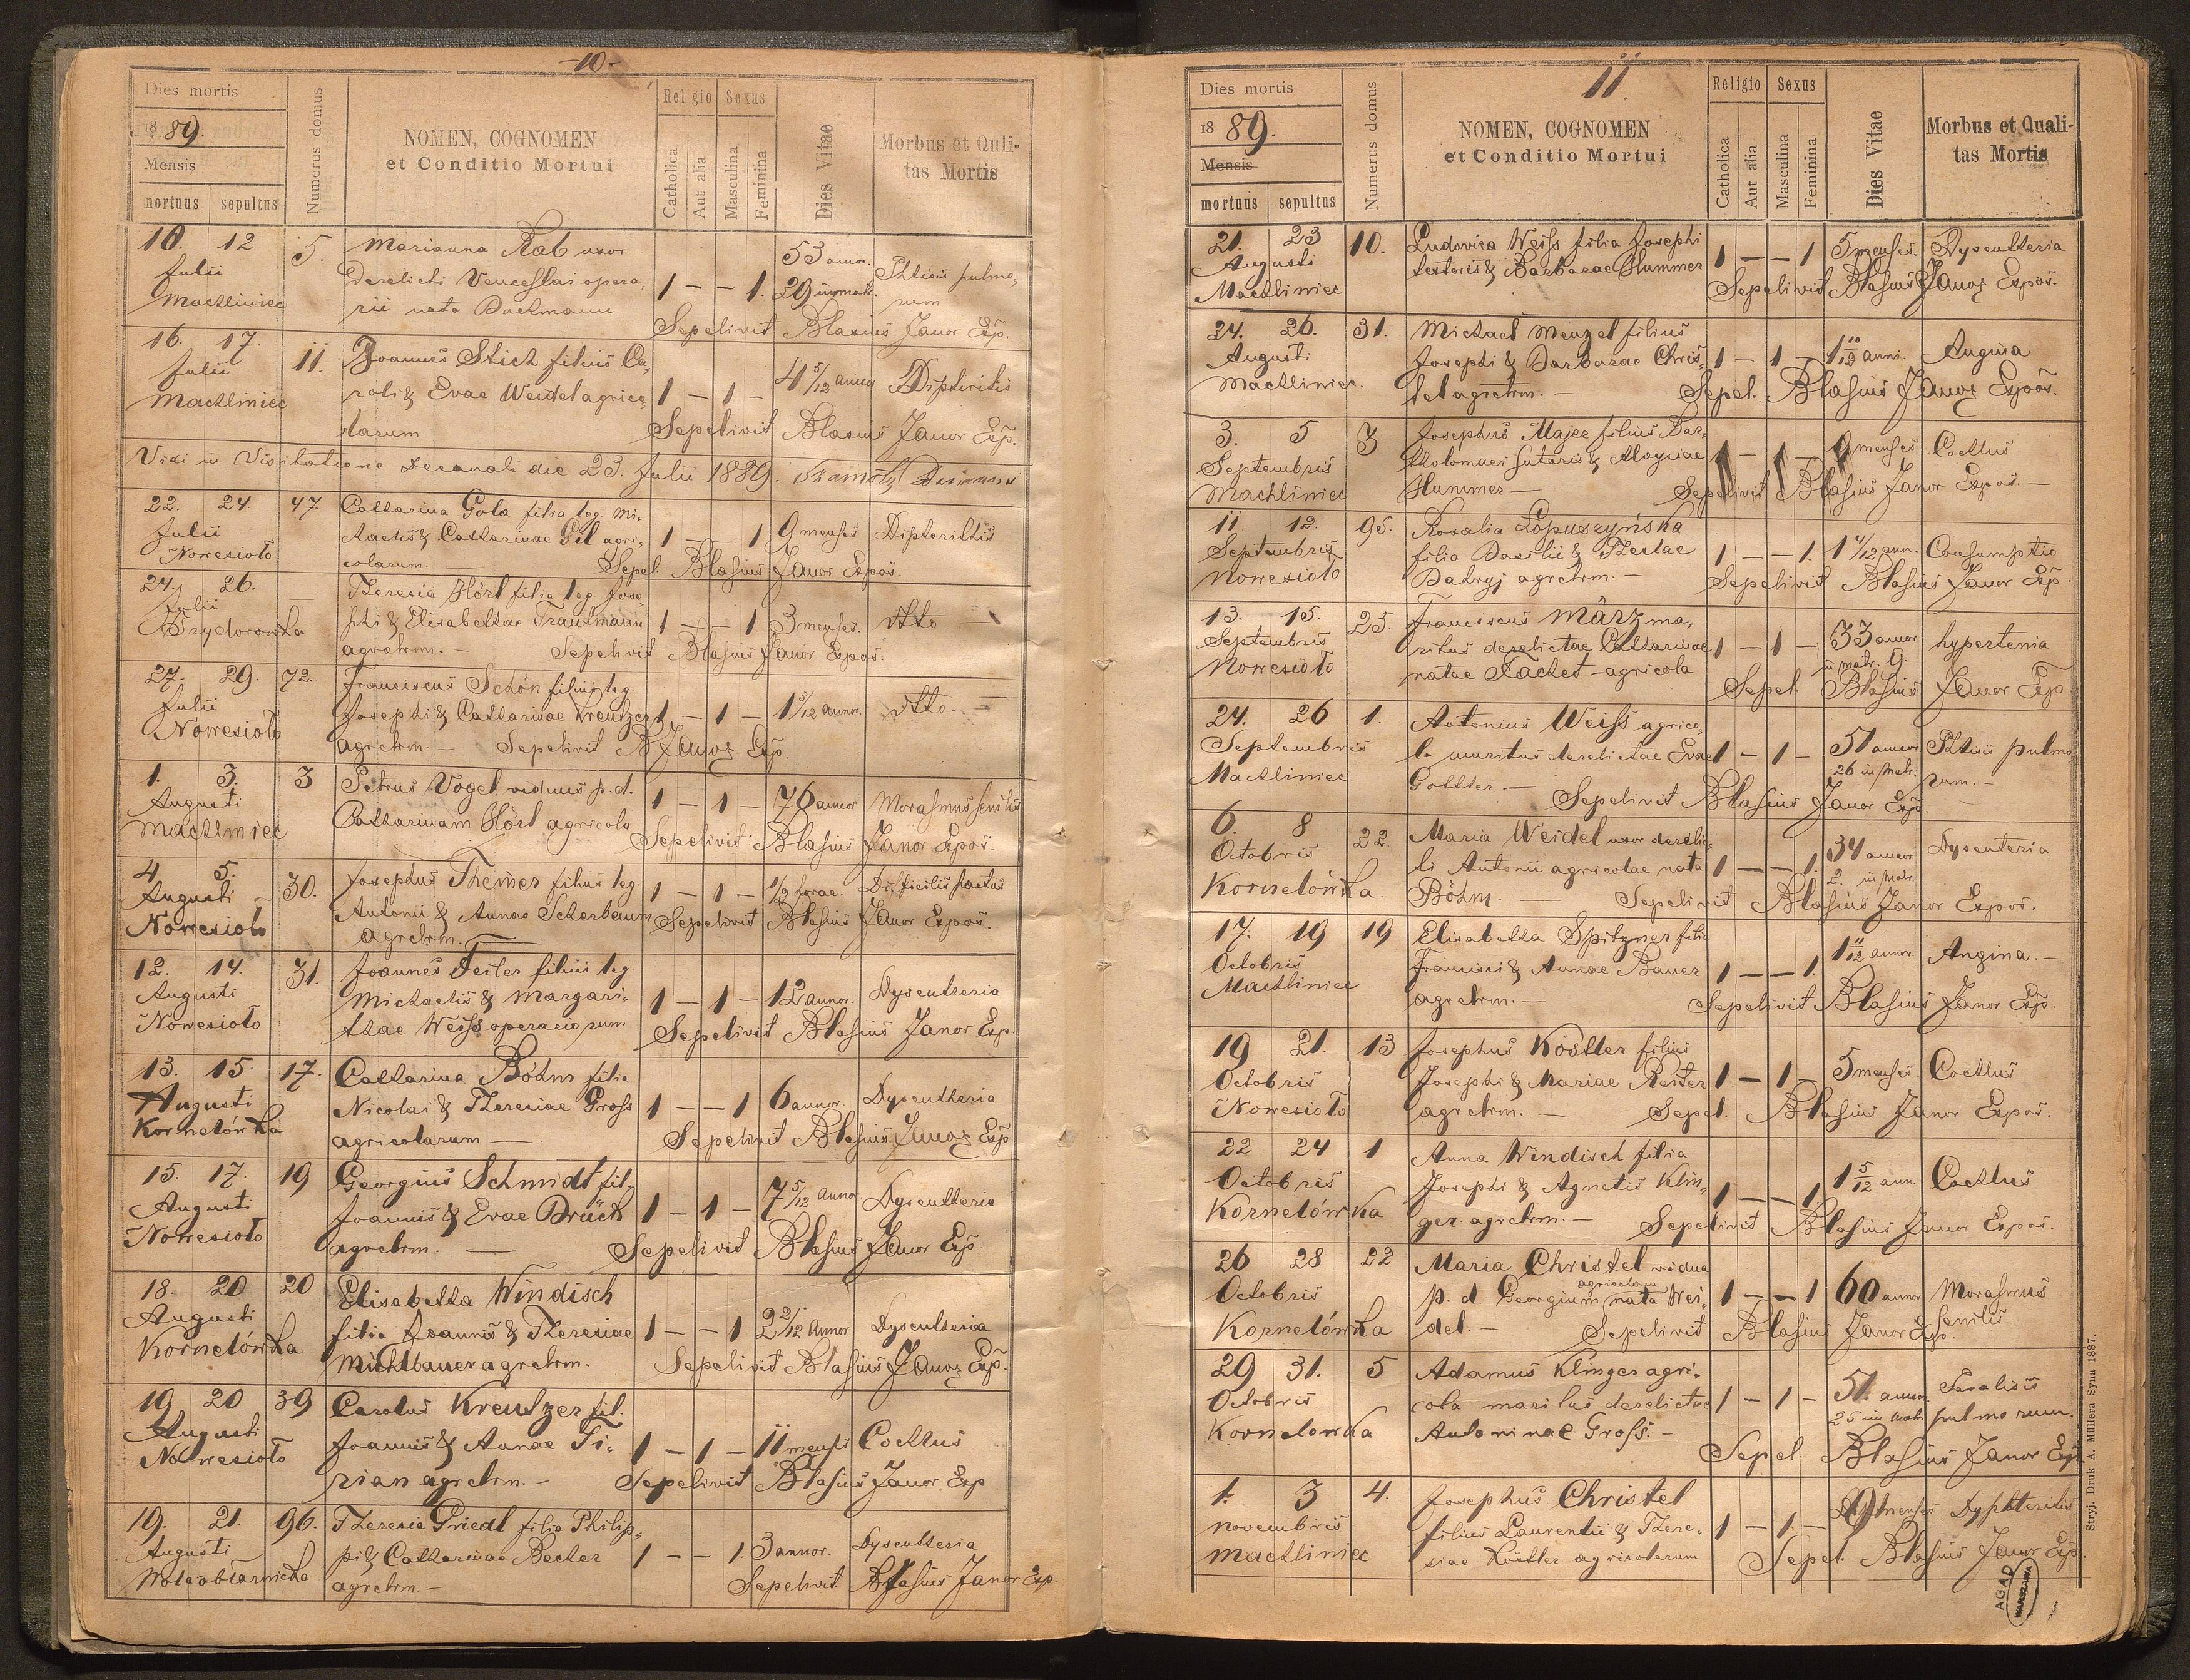 -10-
Dies mortis
1889.
Mensis
mortuus sepultus
Numerus domus
NOMEN, COGNOMEN
et Conditio Mortui
Religio Sexus
Catholica
Aut alia
Masculina
Feminina
Dies Vitae
Morbus et Quli-
tas Mortis
10. 12 5. Marianna Rab uxor 53 annor.
Julii derelicti Venceslai opera, 1 - - 1. 29 in matr. Phtisis pulmo,
Machliniec rii nata Dachmann num
Sepelivit Blasius Janor Exp.
16. 17. 11. Joannes Stich filius Ca,
Julii roli & Evae Weidel agrico, 1 - 1 - 4 5/12 annor Dipteritis
Machliniec larum Sepelivit Blasius Janor Exp.
Vidi in Visitatione decanali die 23. Julii 1889.
22. 24. 47. Catharina Gola filia leg. Mi-
Julii chaelis & Catharinae Gil agri- 1 - - 1 9 menses Dipteritis
Nowesioło colarum. Sepel. Blasius Janor Expos.
24. 26. Theresia Hörl filia leg. Jose-
Julii phi & Elisabethae Trautmann 1 - - 1. 3 menses. dtto. -
agrclrm. - Sepelivit Blasius Janor Expos.
27. 29. 72. Franciscus Schön filius leg.
Julii Josephi & Catharinae Kreutzer 1 - 1 - 1 3/12 annor dtto. -
Nowesioło agrclrm. - Sepelivit B Janor Exp.
1. 3. 3 Petrus Vogel viduus p. d.
Augusti Catharinam Hörl agricola 1 - 1 - 76 annor Morasmus senilis
Machliniec Sepelivit Blasius Janor Expos.
4. 5. 30. Josephus Theimer filius leg.
Augusti Antonii & Annae Scherbaum 1 - 1 - 1/2 horae. Difficilis partus
Nowesioło agrclrm. Sepelivit Blasius Janor Expos.
12. 14. 31. Joannes Feiler filius leg.
Augusti Michaelis & Margari- 1 - 1 - 12 annor. Dysentheria
Nowesioło thae Weiss operariorum Sepelivit Blasius Janor Exp.
13. 15. 17. Catharina Böhm filia
Augusti Nicolai & Theresiae Gross 1 - - 1 6 annor. Dysentheria
Kornelówka agricolarum - Sepelivit Blasius Janor Exp
15. 17. 19 Georgius Schmidt fil,
Augusti Joannis & Evae Drück 1 - 1 - 7 5/12 annor Dysentheria
Nowesioło agrclrm. - Sepelivit Blasius Janor Exp.
18. 20 20 Elisabetha Windisch
Augusti filia Joannis & Theresiae 1 - - 1 2 2/12 Annor Dysentheria
Kornelówka Mühlbauer agrclrm. Sepelivit Blasius Janor Exp.
19 20 39 Carolus Kreutzer fil.
Augusti Joannis & Annae Ti- 1 - 1 - 11 menses Coctlus
Nowesioło rian agrclrm. - Sepelivit Blasius Janor Exp
19. 21. 96. Theresia Griedl filia Philip-
Augusti pi & Catharinae Becher 1 - - 1. 3 annor. Dysentheria
agrclrm. - Sepelivit Blasius Janor Exp
11.
Dies mortis
1889.
Mensis
mortuus sepultus
Numerus domus
NOMEN, COGNOMEN
et Conditio Mortui
Religio Sexus
Catholica
Aut alia
Masculina
Feminina
Dies Vitae
Morbus et Quali-
tas Mortis
21. 23 10. Ludovica Weiss filia Josephi
Augusti textoris & Barbarae Hummer 1 - - 1 5 menses. Dysentheria
Machliniec Sepelivit Blasius Janor Expos.
24. 26. 31. Michael Menzel filius
Augusti Josephi & Barbarae Chris, 1 - 1 - 1 10/12 anni. Angina
Machliniec. tel agrclrm. - Sepel. Blasius Janor Expos.
3. 5 3 Josephus Majer filius Bar,
Septembris tholomaei sutoris & Aloysiae 1 - 1 - 9 menses Coctlus
Machliniec Hummer - Sepelivit Blasius Janor Expos. -
11 12. 95. Rosalia Łopuszyńska
Septembris filia Basilii & Theclae 1 - - 1. 1 4/12 ann. Consumptio
Nowesioło agrclrm. - Sepelivit Blasius Janor Exp.
13. 15. 25. Franciscus März ma,
Septembris ritus derelictae Catharinae 1 - 1 - 33 annor hypertenia
Nowesioło natae Fachet - agricola in matr. 9.
Sepel. Blasius Janor Exp.
24. 26 1. Antonius Weiss agrico,
Septembris la maritus derelictae Evae 1 - 1 - 51 annor Phtisis pulmo,
Machliniec Gottler. - 26 in matr. num. -
Sepelivit Blasius Janor Exp.
6. 8 22. Maria Weidel uxor derelic-
Octobris ti Antonii agricolae nata 1 - - 1 34 annor Dysenteria
Kornelówka. Böhm. - 2. in matr.
Sepelivit Blasius Janor Expos.
17. 19 19 Elisabetha Spitzner filia
Octobris Francisci & Annae Bauer 1 - - 1. 1 11/12 annor. Angina. -
Machliniec agrclrm. - Sepelivit Blasius Janor Exp.
19 21. 13 Josephus Köstler filius
Octobris Josephi & Mariae Reiter 1 - 1 - 5 menses Coctlus
Nowesioło agrclrm. - Sepel. Blasius Janor Expos.
22 24 1 Anna Windisch filia
Octobris Josephi & Agnetis Klin, 1 - - 1. 1 5/12 ann. Coctlus
Kornelówka ger agrclrm. - Sepelivit Blasius Janor Expos.
26 28 22 Maria Christel vidua
agricolam
Octobris p. d. Georgium nata Wei- 1 - - 1 60 annor Morasmus
Kornelówka del. - Sepelivit Blasius Janor Exp. senilis
29 31. 5 Adamus Klinger agri-
Octobris cola maritus derelictae 1 - 1 - 51. annor. Paralisis
Kornelowka Antoninae Gross. - 25 in matr. pulmonum.
Sepel. Blasius Janor Exp
1. 3 4. Josephus Christel
Novembris filius Laurentii & There- 1 - 1 - 9 menses Dyphteritis
Machliniec siae Köstler agricolarum Sepel. Blasius Janor Exp.
Stryj. Druk A. Müllera Syna 1887.
AGAD
WARSZAWA